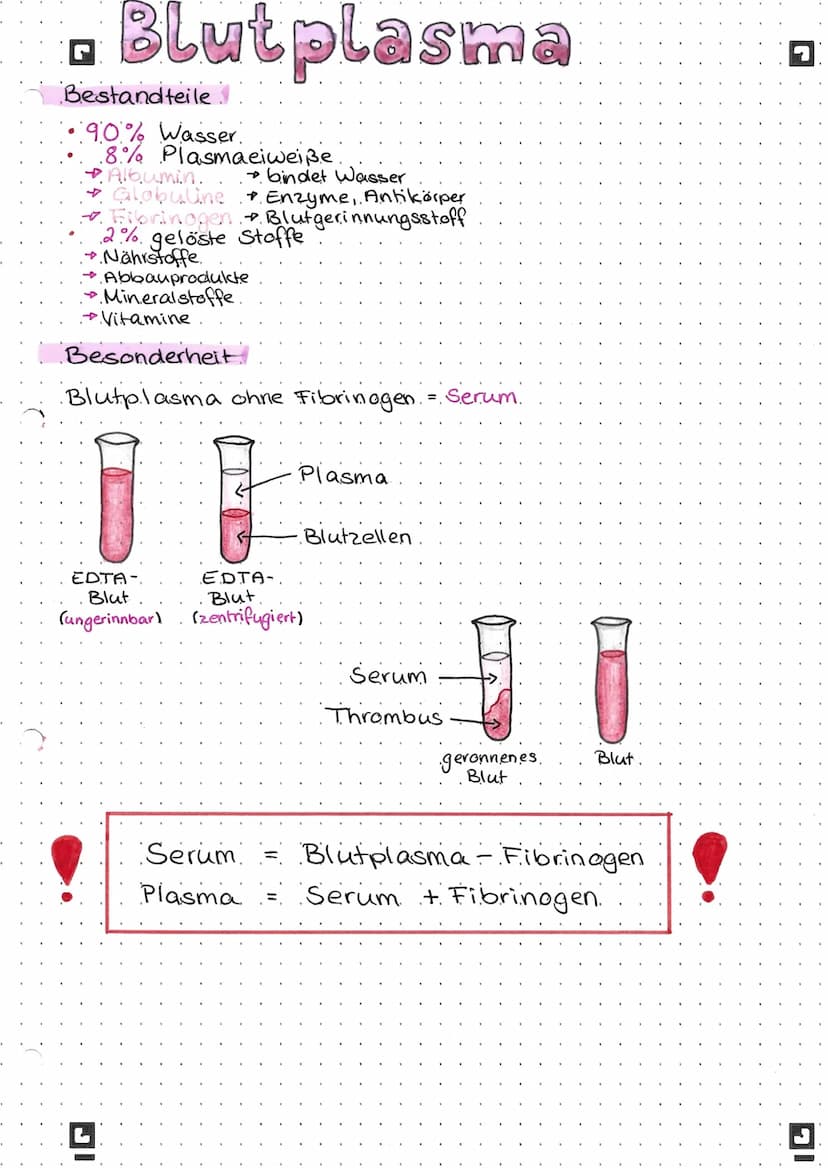 Blutplasma
Bestandteile
• 90% Wasser
• 8% Plasmaeiweiße
→ Albumin → bindet Wasser
→ Globuline → Enzyme, Antikörper
→ Fibrinogen → Blutgerinnungsstoff
• 2% gelöste Stoffe
→ Nährstoffe
→ Abbauprodukte
→ Mineralstoffe
→ Vitamine
Besonderheit
Blutplasma ohne Fibrinogen = Serum
Plasma
Blutzellen
EDTA-
Blut
(ungerinnbar)
EDTA-
Blut
(zentrifugiert)
Serum
Thrombus
geronnenes
Blut
Blut
! Serum = Blutplasma - Fibrinogen !
Plasma = Serum + Fibrinogen